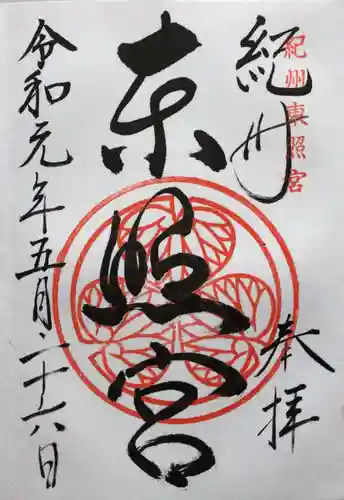 紀州東照宮
紀州
奉拝
東照宮
令和元年五月二十六日